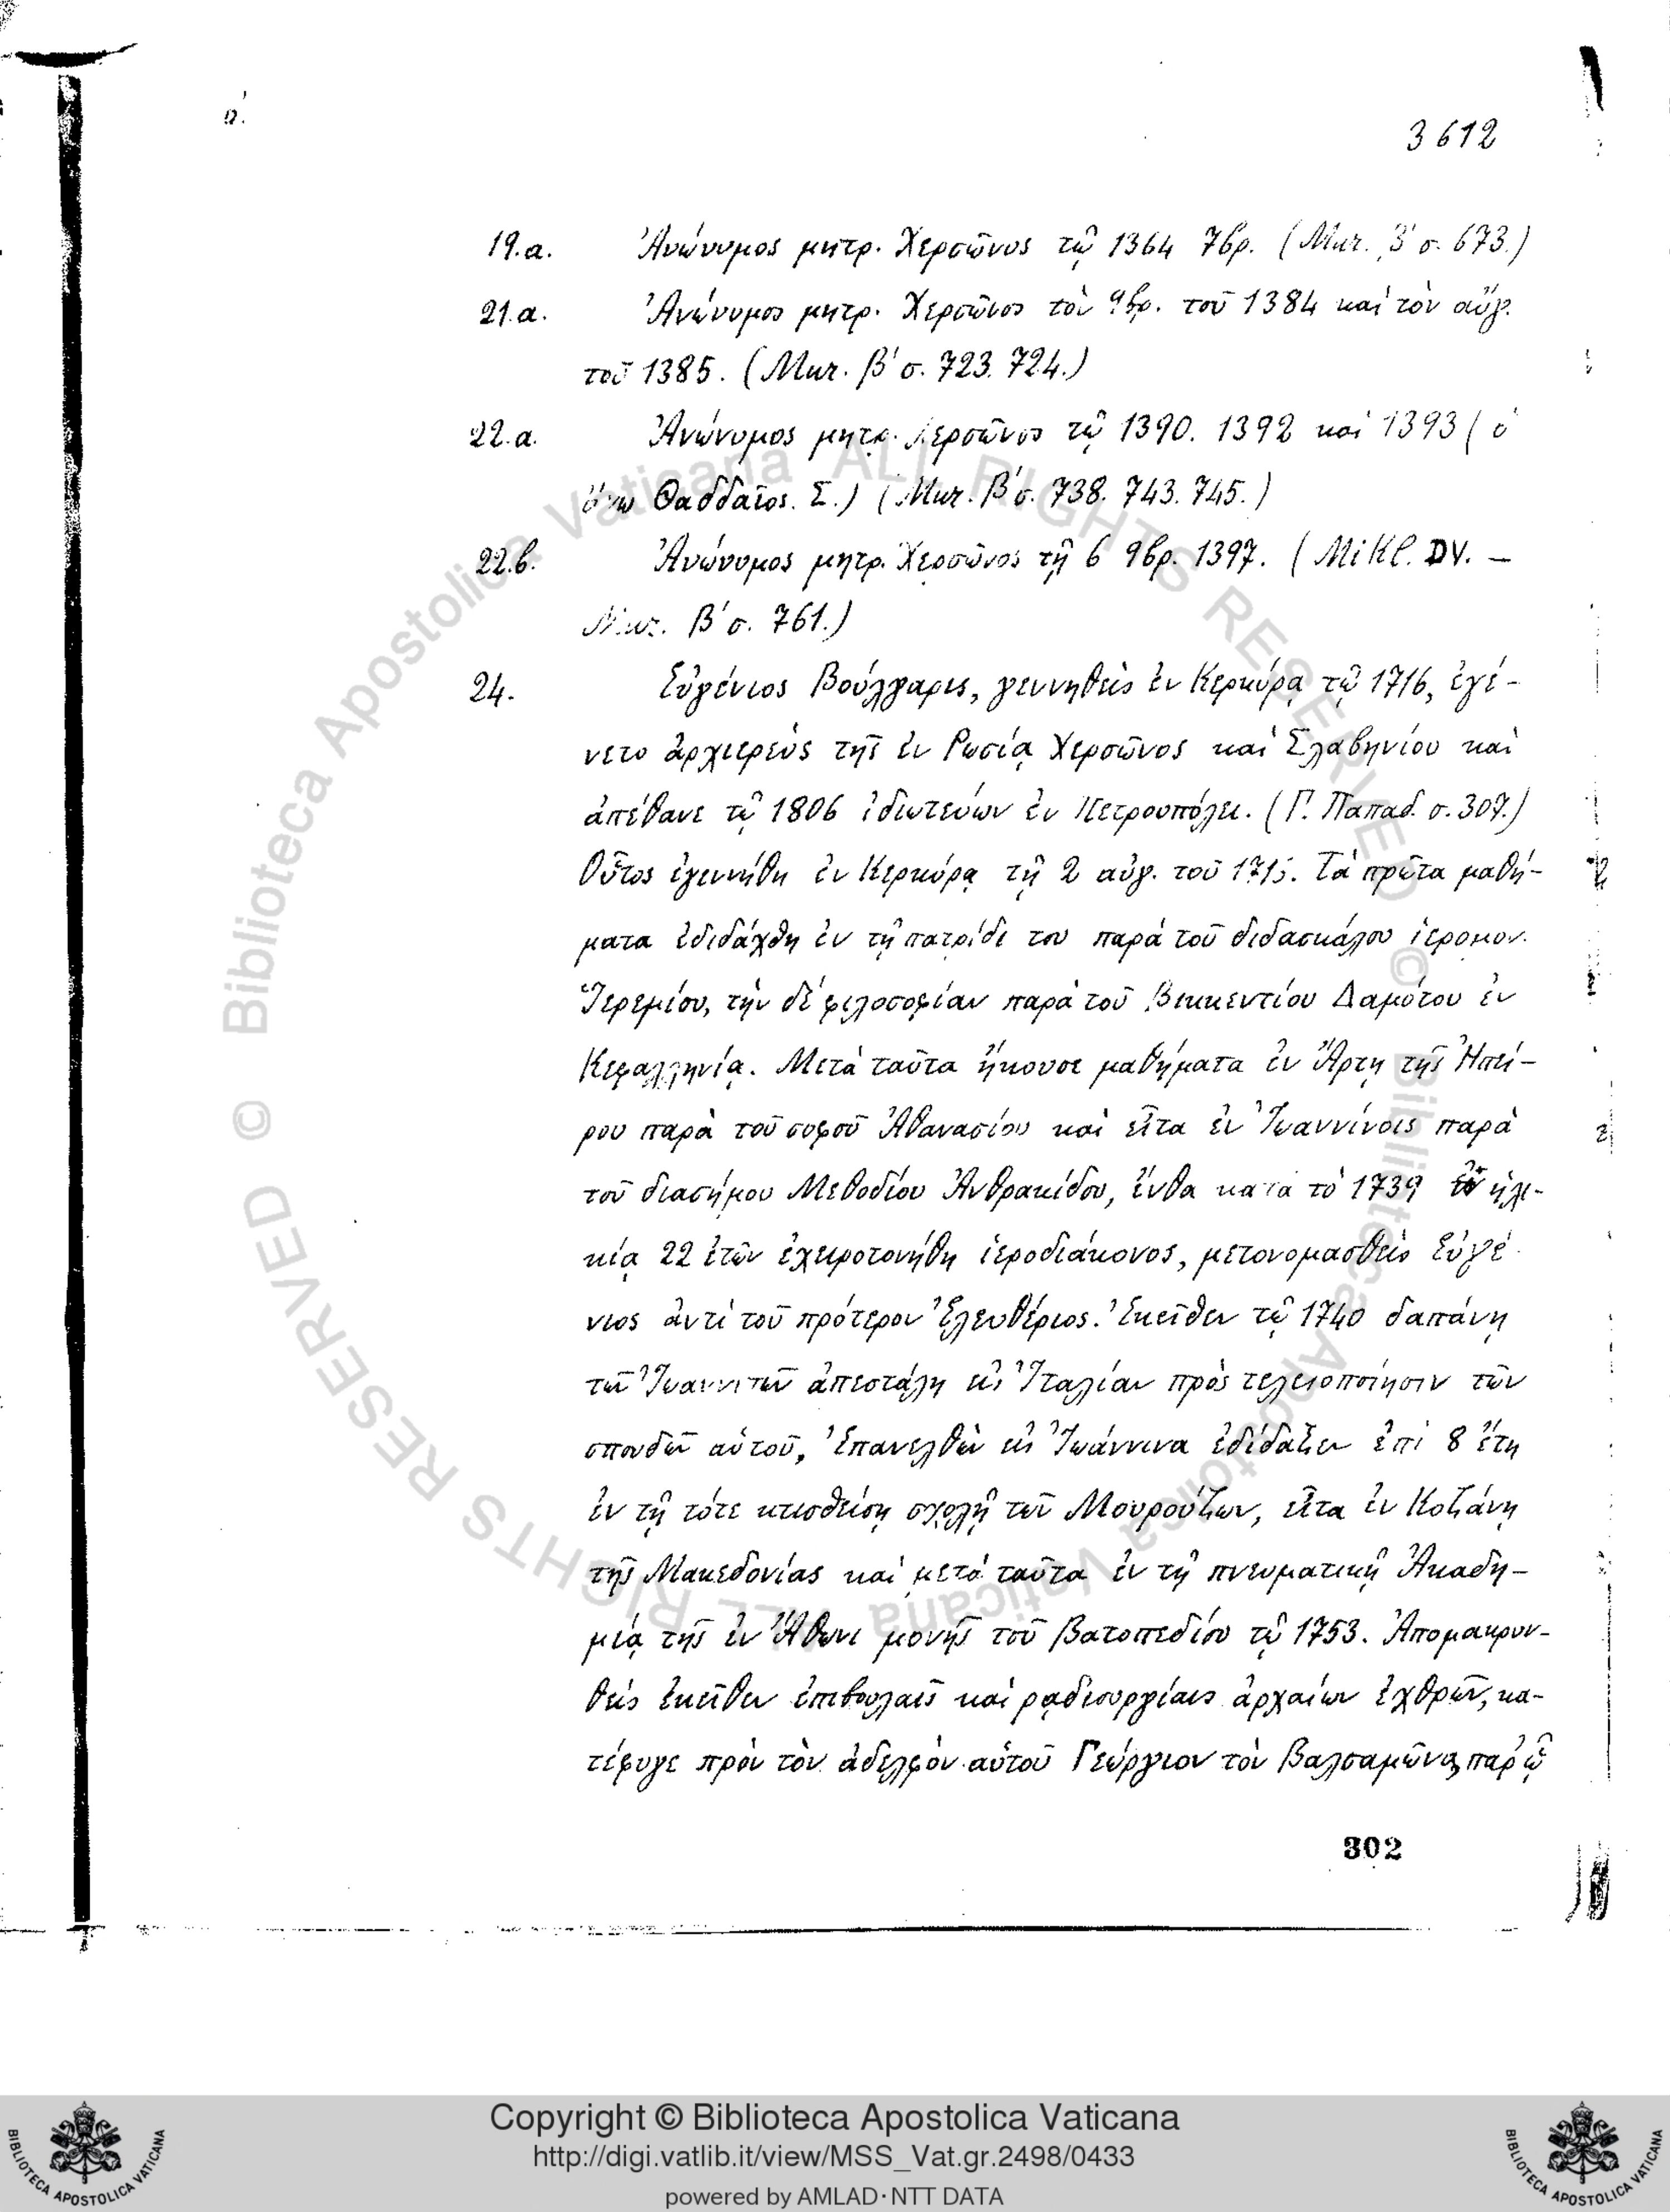 α΄.
3612
19.a. Ἀνώνυμος μητρ. Χερσῶνος τῷ 1364 7βρ. (Μικ. β΄ σ. 673.)
21.a. Ἀνώνυμος μητρ. Χερσῶνος τὸν 9βρ. τοῦ 1384 καὶ τὸν αὔγ.
τοῦ 1385. (Μικ. β΄ σ. 723. 724.)
22.a. Ἀνώνυμος μητρ. Χερσῶνος τῷ 1390. 1392 καὶ 1393 (ὁ
ἄνω Θαδδαῖος. Σ.) (Μικ. β΄ σ. 738. 743. 745.)
22.b. Ἀνώνυμος μητρ. Χερσῶνος τῇ 6 9βρ. 1397. (Mikl. DV. —
Μικ. β΄ σ. 761.)
24. Εὐγένιος Βούλγαρις, γεννηθεὶς ἐν Κερκύρᾳ τῷ 1716, ἐγέ-
νετο ἀρχιερεὺς τῆς ἐν Ρωσίᾳ Χερσῶνος καὶ Σλαβηνίου καὶ
ἀπέθανε τῷ 1806 ἰδιωτεύων ἐν Πετρουπόλει. (Γ. Παπαδ. σ. 307.)
Οὗτος ἐγεννήθη ἐν Κερκύρᾳ τῇ 2 αὐγ. τοῦ Τὰ πρῶτα μαθή-
ματα ἐδιδάχθη ἐν τῇ πατρίδι του παρὰ τοῦ διδασκάλου ἱερομον.
Ἱερεμίου, τὴν δὲ φιλοσοφίαν παρὰ τοῦ Βικκεντίου Δαμότου ἐν
Κεφαλληνίᾳ. Μετὰ ταῦτα ἤκουσε μαθήματα ἐν Ἄρτῃ τῆς Ἠπεί-
ρου παρὰ τοῦ σοφοῦ Ἀθανασίου καὶ εἶτα ἐν Ἰωαννίνοις παρὰ
τοῦ διασήμου Μεθοδίου Ἀνθρακίδου, ἔνθα κατὰ τὸ 1739 ἐν ἡλι-
κίᾳ 22 ἐτῶν ἐχειροτονήθη ἱεροδιάκονος, μετονομασθεὶς Εὐγέ-
νιος ἀντὶ τοῦ πρότερον Ἐλευθέριος. Ἐκεῖθεν τῷ 1740 δαπάνῃ
τῶν Ἰωαννιτῶν ἀπεστάλη εἰς Ἰταλίαν πρὸς τελειοποίησιν τῶν
σπουδῶν αὑτοῦ, Ἐπανελθὼν εἰς Ἰωάννινα ἐδίδαξεν ἐπὶ 8 ἔτη
ἐν τῇ τότε κτισθείσῃ σχολῇ τῶν Μουρούζων, εἶτα ἐν Κοζάνῃ
τῆς Μακεδονίας καὶ μετὰ ταῦτα ἐν τῇ πνευματικῇ Ἀκαδη-
μίᾳ τῆς ἐν Ἄθωνι μονῆς τοῦ Βατοπεδίου τῷ 1753. Ἀπομακρυν-
θεὶς ἐκεῖθεν ἐπιβουλαῖς καὶ ῥᾳδιουργίαις ἀρχαίων ἐχθρῶν, κα-
τέφυγε πρὸς τὸν ἀδελφὸν αὑτοῦ Γεώργιον τὸν Βαλσαμῶνα, παρ' ᾧ
302
© Biblioteca Apostolica Vaticana ALL RIGHTS RESERVED © Biblioteca Apostolica Vaticana ALL RIGHTS RESERVED
Copyright © Biblioteca Apostolica Vaticana
http://digi.vatlib.it/view/MSS_Vat.gr.2498/0433
powered by AMLAD·NTT DATA
BIBLIOTECA APOSTOLICA VATICANA
BIBLIOTECA APOSTOLICA VATICANA